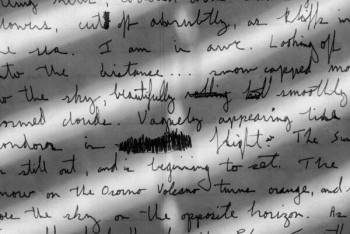 flowers, cut off absolutely, as cliffs in
the sea. I am in awe. Looking off
into the distance... snow capped mo
to the sky, beautifully smoothly
formed clouds. Vaguely appearing like
condors in flight. The Sun
is still out, and is beginning to set. The
snow on the Osorno Volcano turns orange, and
the sky on the opposite horizon. As